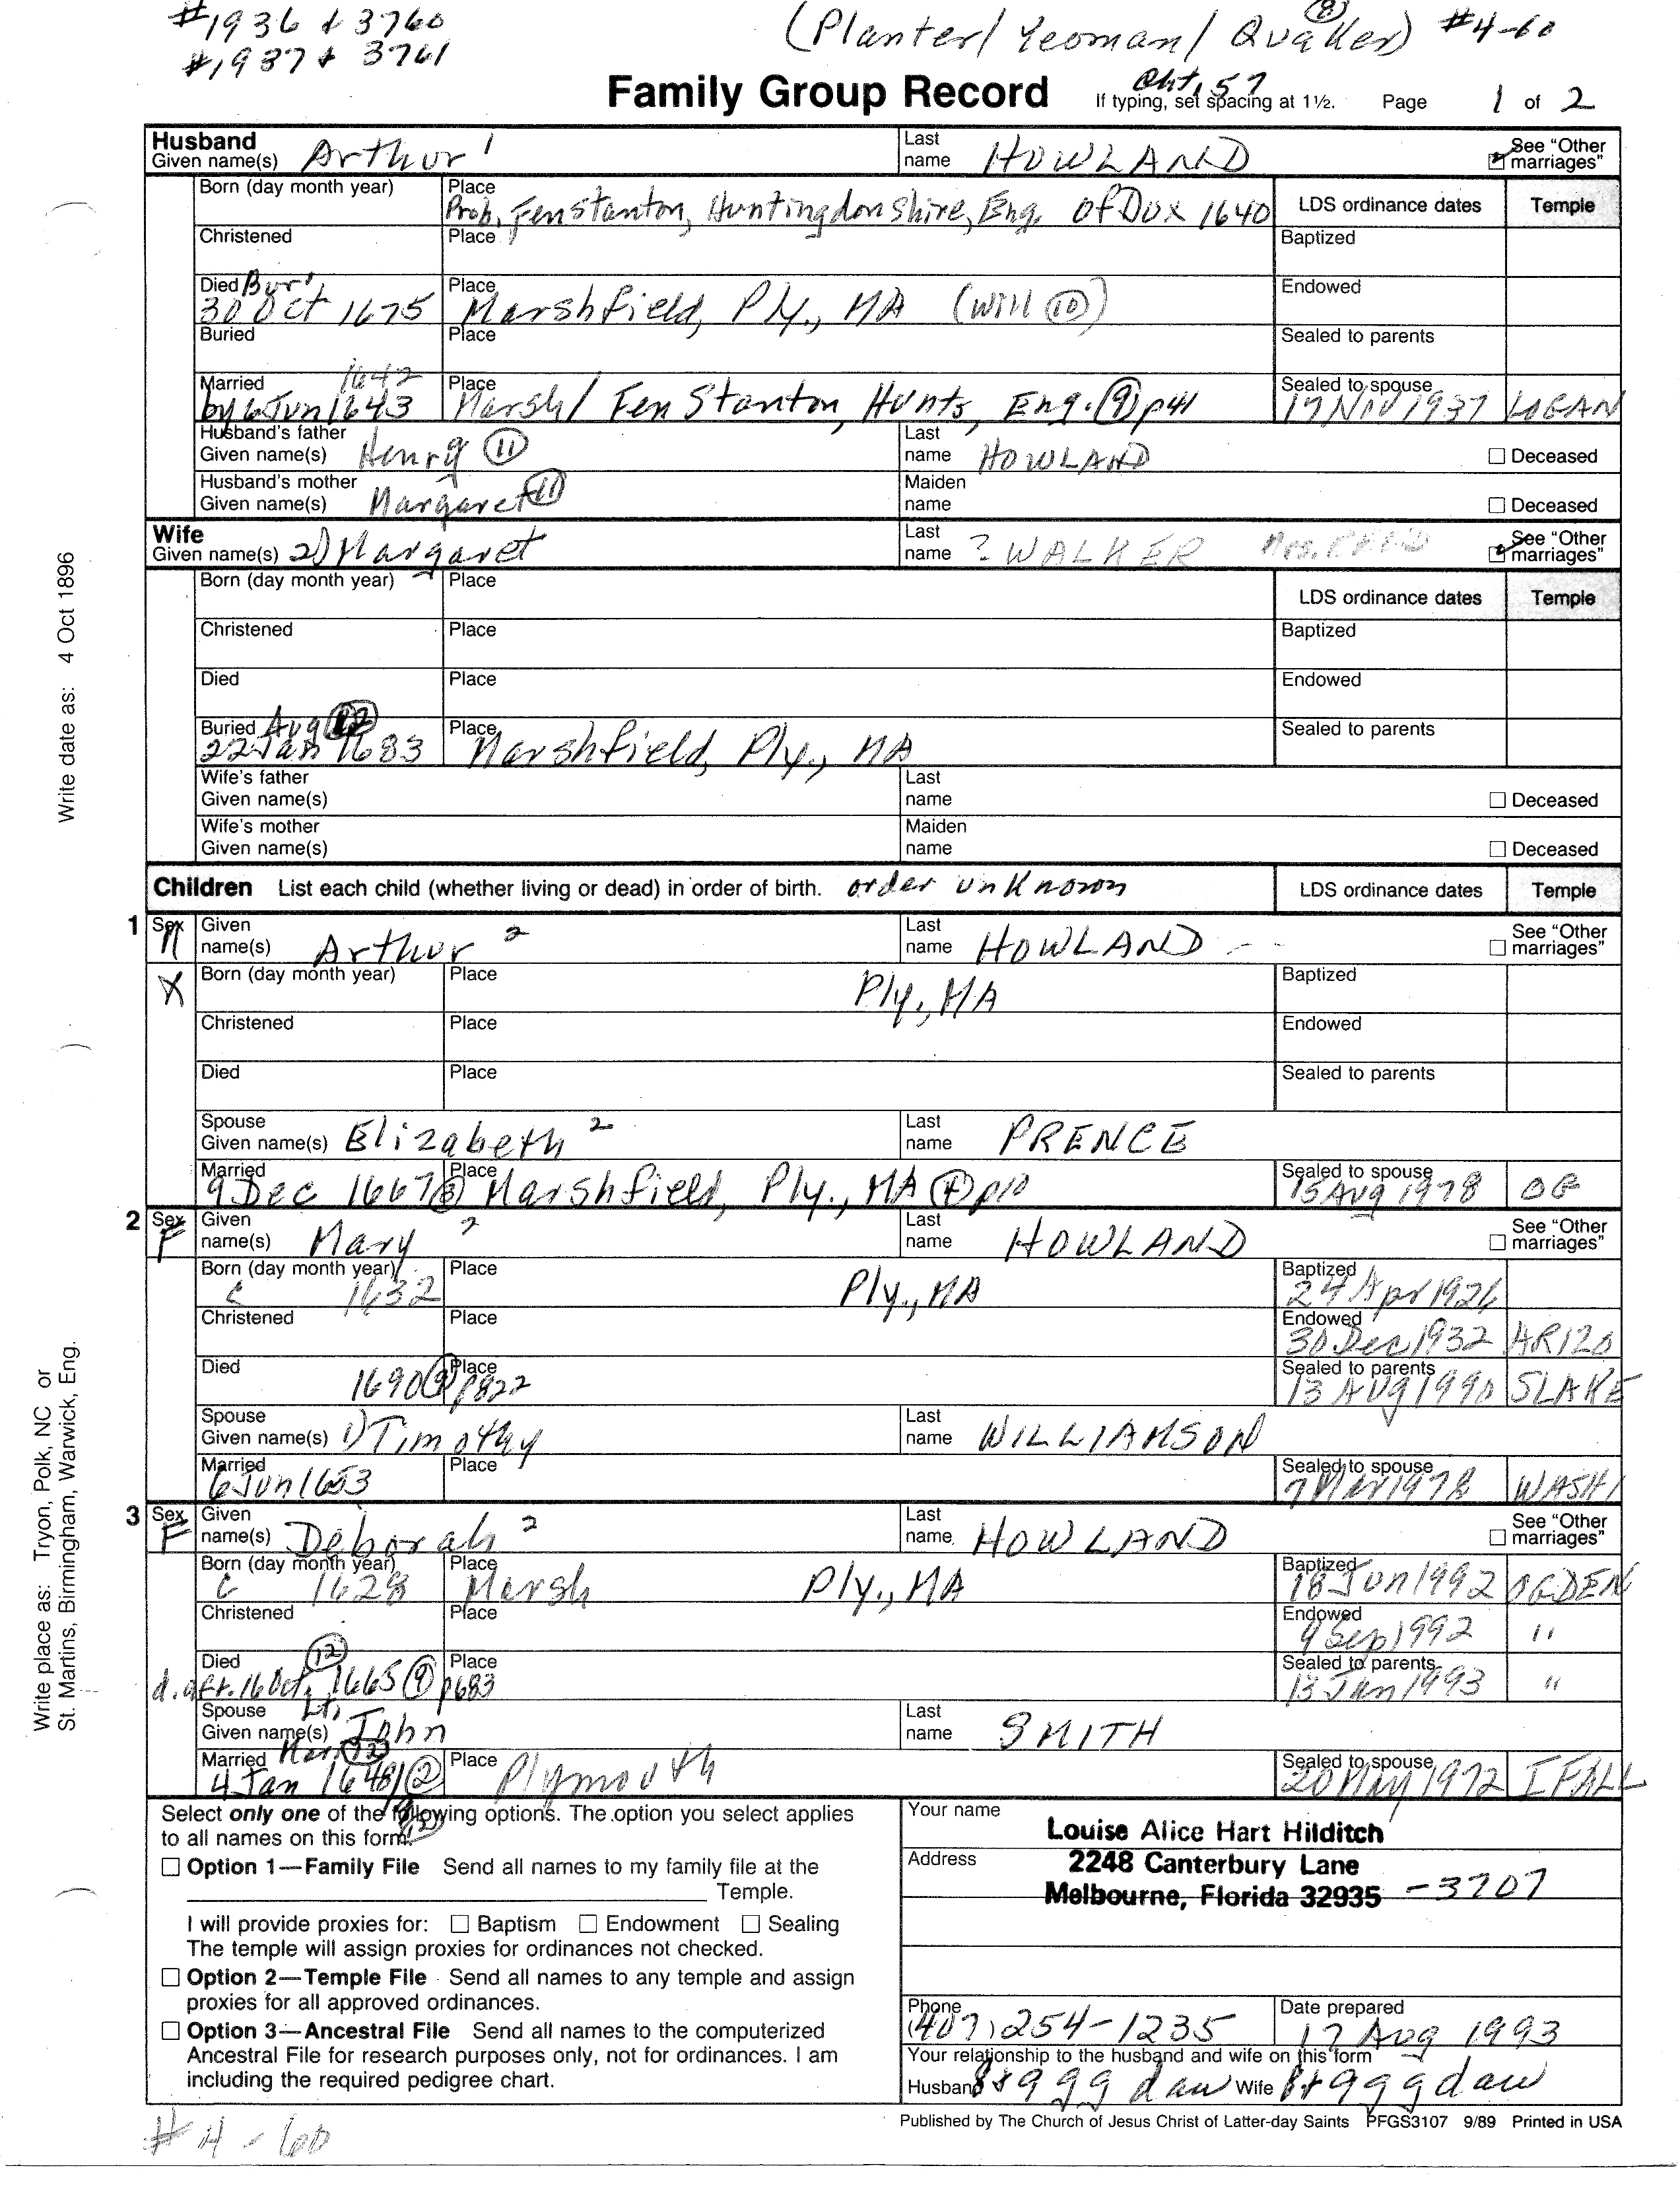 #1936 & 3760
#1937 & 3761
(Planter/ Yeoman/ Quaker) ⑧ #4-60
Family Group Record
Cht. 57
If typing, set spacing at 1½. Page 1 of 2
Husband
Given name(s) Arthur 1
Last name HOWLAND
See "Other marriages"
Born (day month year)
Place Prob. Fenstanton, Huntingdonshire, Eng. of Dux 1640
LDS ordinance dates Temple
Christened Place Baptized
Died Bur' 30 Oct 1675
Place Marshfield, Ply., MA (Will ⑩)
Endowed
Buried Place Sealed to parents
Married 1642 by 6 Jun 1643
Place Marsh/ Fen Stanton, Hunts, Eng. ⑨ p41
Sealed to spouse 17 Nov 1937 LOGAN
Husband's father
Given name(s) Henry ⑪
Last name HOWLAND
Deceased
Husband's mother
Given name(s) Margaret ⑪
Maiden name
Deceased
Wife
Given name(s) 2) Margaret
Last name ? WALKER Mrs.
See "Other marriages"
Born (day month year) Place
LDS ordinance dates Temple
Christened Place Baptized
Died Place Endowed
Buried Aug ⑫ 22 Jan 1683
Place Marshfield, Ply., MA
Sealed to parents
Wife's father
Given name(s)
Last name
Deceased
Wife's mother
Given name(s)
Maiden name
Deceased
Children List each child (whether living or dead) in order of birth. order unknown
LDS ordinance dates Temple
1 Sex M
Given name(s) Arthur 2
Last name HOWLAND
See "Other marriages"
X
Born (day month year) Place Ply., MA
Baptized
Christened Place Endowed
Died Place Sealed to parents
Spouse
Given name(s) Elizabeth 2
Last name PRENCE
Married 9 Dec 1667 ③
Place Marshfield, Ply., MA ④ p10
Sealed to spouse 15 Aug 1978 OG
2 Sex F
Given name(s) Mary 2
Last name HOWLAND
See "Other marriages"
Born (day month year) c 1632
Place Ply., MA
Baptized 24 Apr 1926
Christened Place
Endowed 30 Dec 1932 ARIZO
Died 1690 ⑨ p822
Place
Sealed to parents 13 AUG 1990 SLAKE
Spouse
Given name(s) 1) Timothy
Last name WILLIAMSON
Married 6 Jun 1653
Place
Sealed to spouse 7 Mar 1978 WASHI
3 Sex F
Given name(s) Deborah 2
Last name HOWLAND
See "Other marriages"
Born (day month year) c 1628
Place Marsh Ply., MA
Baptized 18 Jun 1992 OGDEN
Christened Place
Endowed 9 Sep 1992 "
Died d. aft. 16 Oct. ⑫ 1665 ⑨ p683
Place
Sealed to parents 13 Jan 1993 "
Spouse
Given name(s) Lt. John
Last name SMITH
Married Mar. ⑫ 4 Jan 1648/ ②
Place Plymouth
Sealed to spouse 20 May 1972 IFALL
Select only one of the following options. The option you select applies
to all names on this form.
Option 1—Family File Send all names to my family file at the
Temple.
I will provide proxies for: Baptism Endowment Sealing
The temple will assign proxies for ordinances not checked.
Option 2—Temple File Send all names to any temple and assign
proxies for all approved ordinances.
Option 3—Ancestral File Send all names to the computerized
Ancestral File for research purposes only, not for ordinances. I am
including the required pedigree chart.
Your name Louise Alice Hart Hilditch
Address 2248 Canterbury Lane
Melbourne, Florida 32935 -3707
Phone (407) 254-1235
Date prepared 17 Aug 1993
Your relationship to the husband and wife on this form
Husband 8+ ggg dau Wife 8+ ggg dau
Published by The Church of Jesus Christ of Latter-day Saints PFGS3107 9/89 Printed in USA
#4-60
Write date as: 4 Oct 1896
Write place as: Tryon, Polk, NC or
St. Martins, Birmingham, Warwick, Eng.